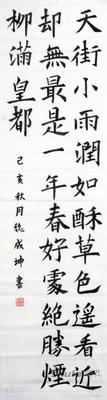 天街小雨潤如酥草色遙看近
却無最是一年春好處絕勝煙
柳滿皇都
己亥秋月
成坤書